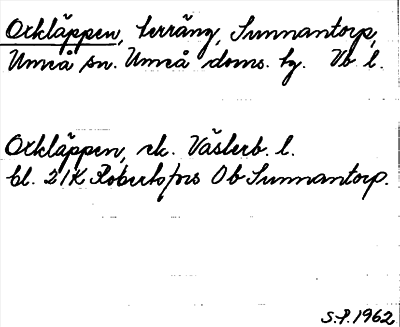 Orkläppen, terräng, Sunnantorp,
Umeå sn. Umeå doms. tg. Vb l.
Orkläppen, ek. Västerb. l.
bl. 21K Robertsfors Ob Sunnantorp.
S.P. 1962